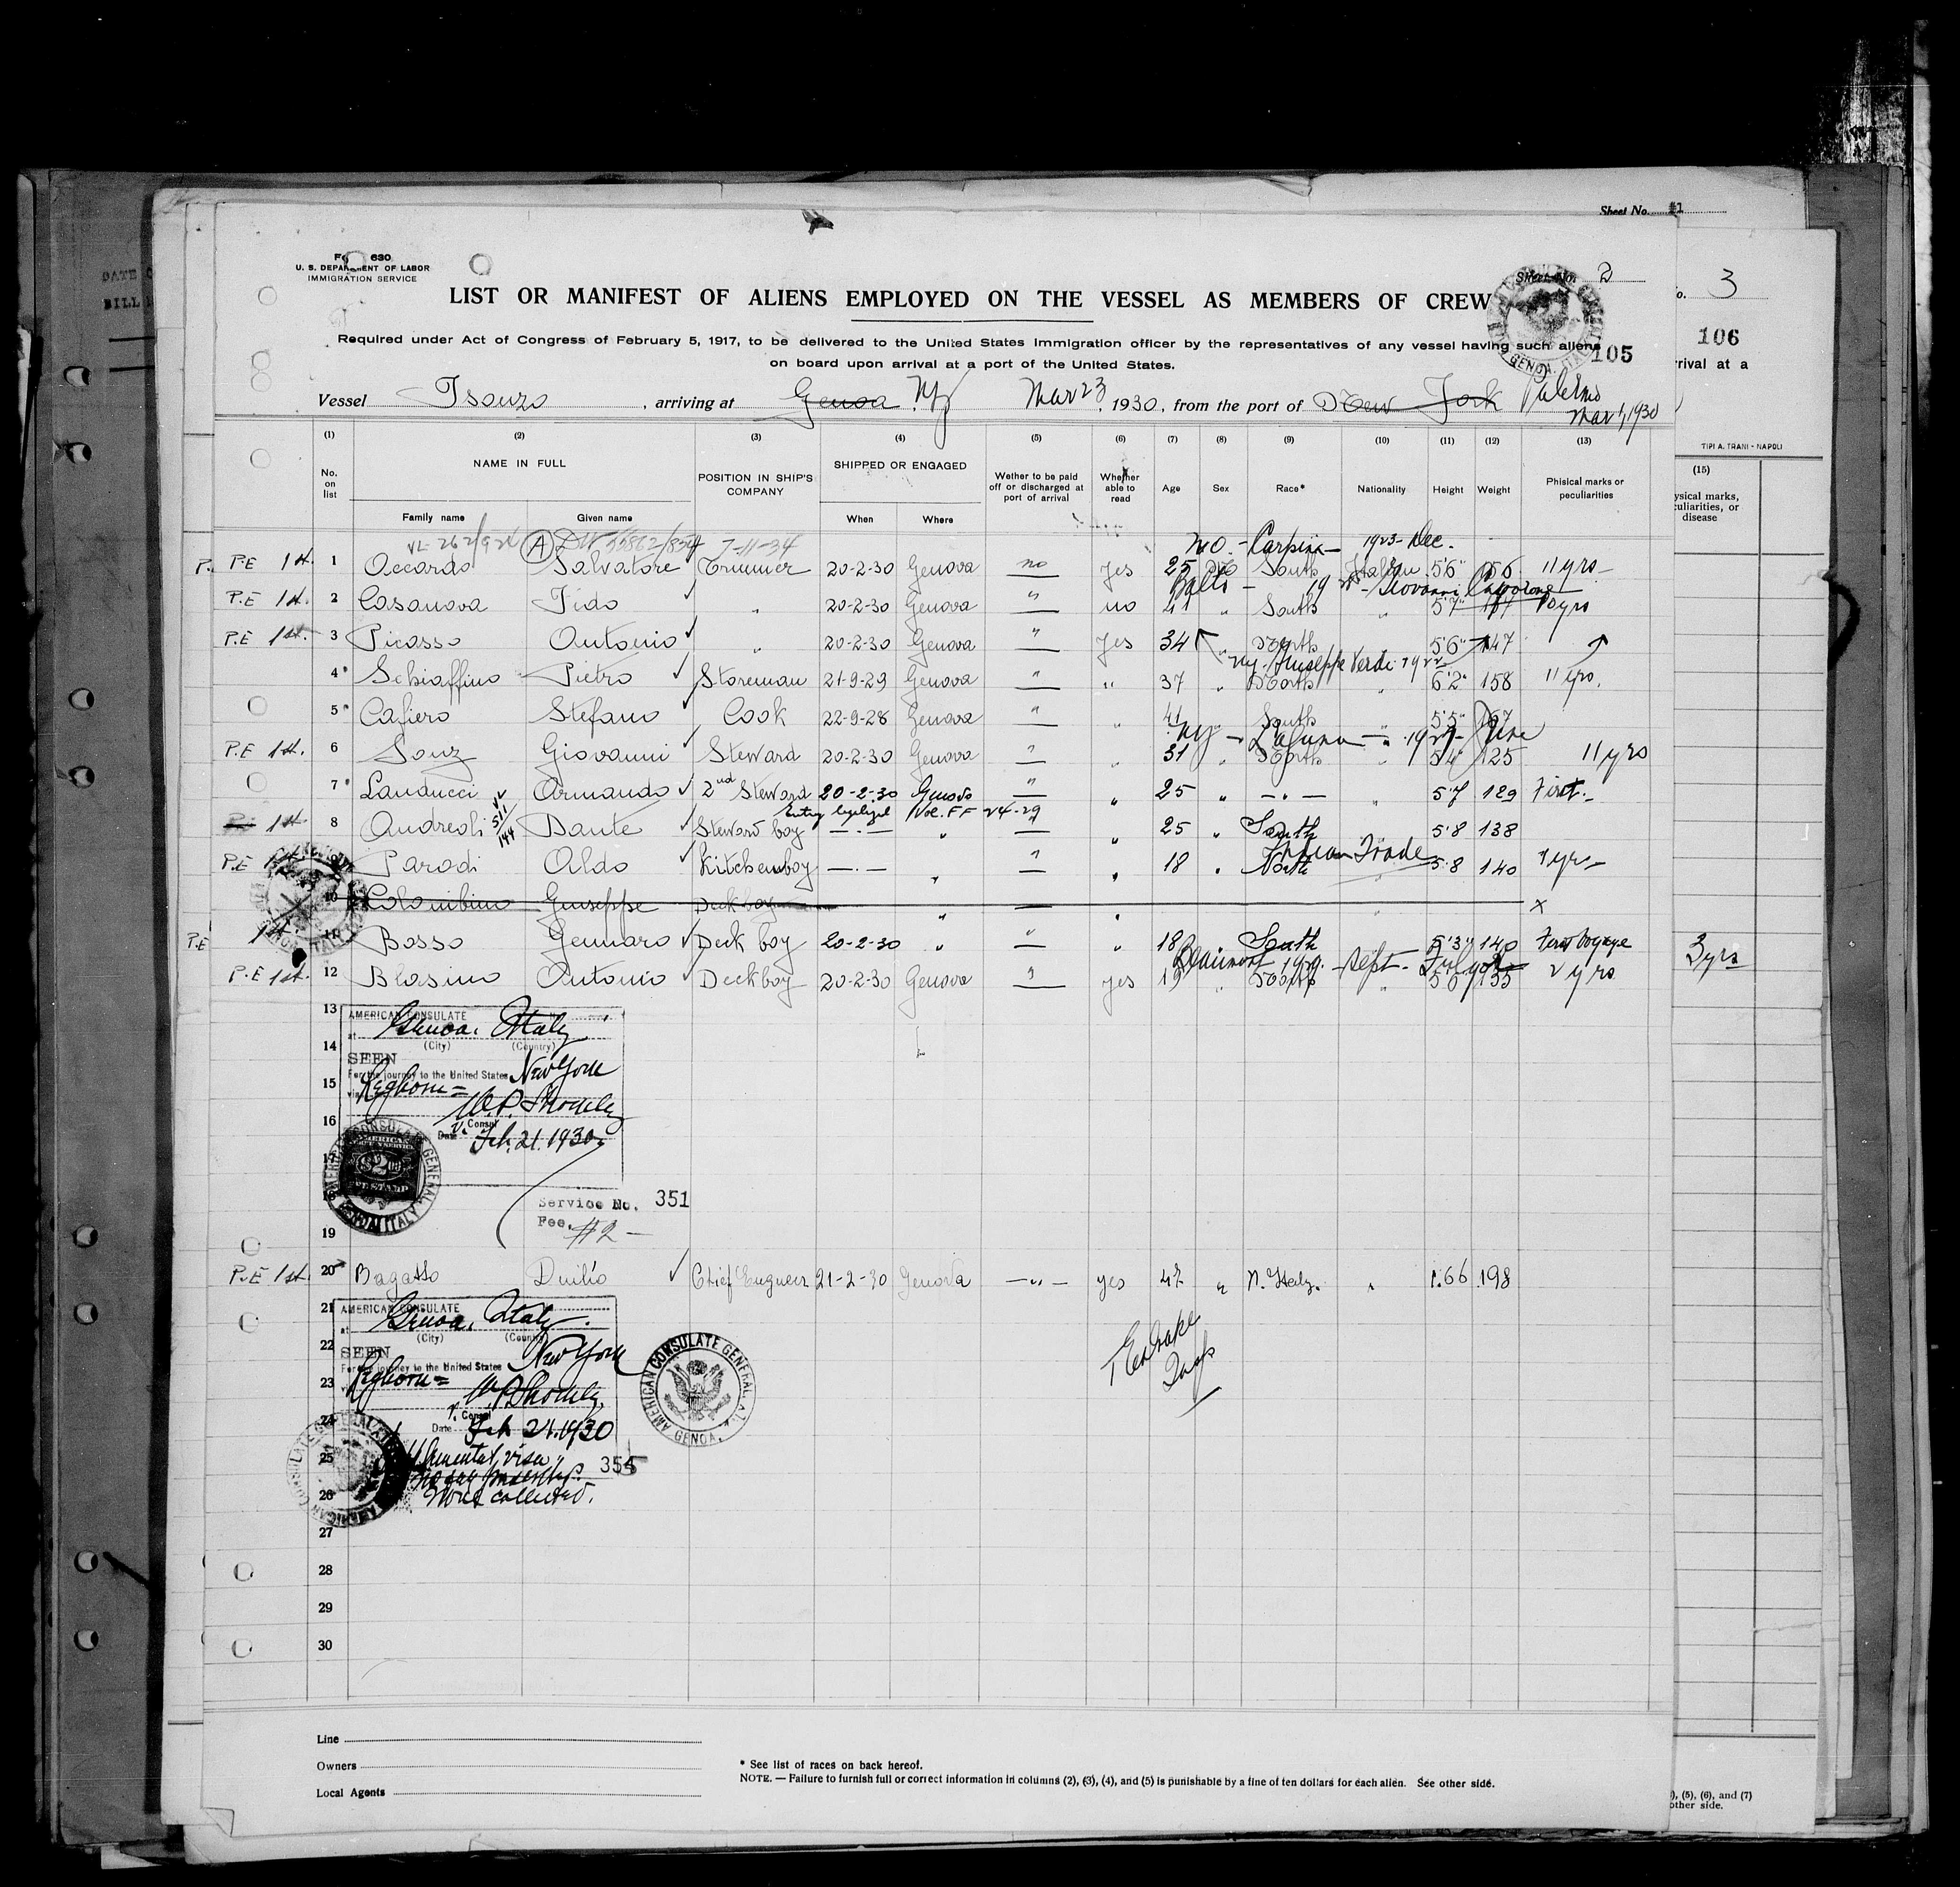 Sheet No. #1
FORM 630
U. S. DEPARTMENT OF LABOR
IMMIGRATION SERVICE
Sheet No. 2
No. 3
LIST OR MANIFEST OF ALIENS EMPLOYED ON THE VESSEL AS MEMBERS OF CREW
105
106
Required under Act of Congress of February 5, 1917, to be delivered to the United States Immigration officer by the representatives of any vessel having such aliens
on board upon arrival at a port of the United States.
rival at a
Vessel Isonzo, arriving at Genoa Ny Mar 23, 1930, from the port of New York Palermo
Mar 1, 1930
TIPI A. TRANI - NAPOLI
(1) (2) (3) (4) (5) (6) (7) (8) (9) (10) (11) (12) (13) (15)
No. on list
NAME IN FULL
Family name Given name
POSITION IN SHIP'S COMPANY
SHIPPED OR ENGAGED
When Where
Wether to be paid off or discharged at port of arrival
Whether able to read
Age Sex Race* Nationality Height Weight
Phisical marks or peculiarities
ysical marks, culiarities, or disease
7-11-34
N.O. - Carpina - 1923 - Dec.
P.E 1st. 1 Accardo Salvatore Trimmer 20-2-30 Genova no yes 25 South Italian 5'6" 156 11 yrs
Balto - Giovanni
P.E 1st. 2 Casanova Fido " 20-2-30 Genova " no 41 " South " 5'7" 10 yrs
P.E 1st. 3 Picasso Antonio " 20-2-30 Genova " yes 34 " North 5'6" 147
Ny. Giuseppe Verdi 1922
4 Schiaffino Pietro Storeman 21-9-29 Genova " " 37 " North " 6'2" 158 11 yrs.
5 Cafiero Stefano Cook 22-9-28 Genova " " 41 South 5'5" 167
Ny - June
P.E 1st. 6 Giovanni Steward 20-2-30 Genova " " 31 " North " 5'4" 125 11 yrs
7 Landucci Armando 2nd Steward 20-2-30 Genova " " 25 " -"- 5'7 129 First
Entry legalized Vol. FF 24-29
1st 8 Andreoli Dante Steward boy -"- " " 25 " South 5'8 138
511/144
Indian Trade
P.E 9 Parodi Aldo Kitchenboy -"- " " 18 " North " 5'8 140
10 Colombino Giuseppe Deck boy x
P.E 1st. 11 Bosso Gennaro Deck boy 20-2-30 " " " 18 South 5'3" 140 First Voyage 3 yrs
Beaumont 1929. Sept-
P.E 1st. 12 Blasino Antonio Deckboy 20-2-30 Genova " yes 19 " " 5'6 135 2 yrs
13
AMERICAN CONSULATE
at Genoa, Italy
(City) (Country)
14
SEEN
For the journey to the United States New York
15
via Leghorn =
16
V. Consul
Date Feb. 21. 1930
17
AMERICAN CONSULATE GENERAL
GENOA ITALY
18
Service No. 351
Fee, #2 -
19
P.E 1st. 20 Bagatto Duilio Chief Engineer 21-2-30 Genova -"- yes 47 " N. Italy. " 1.66 198
21
AMERICAN CONSULATE
at Genoa, Italy.
(City) (Country)
22
SEEN
For the journey to the United States New York
23
Leghorn =
AMERICAN CONSULATE GENERAL, AT
GENOA.
24
V. Consul
Date Feb 24. 1930
25
visa
354
26
None collected.
27
28
29
30
Line
Owners
Local Agents
* See list of races on back hereof.
NOTE. — Failure to furnish full or correct information in columns (2), (3), (4), and (5) is punishable by a fine of ten dollars for each alien. See other side.
), (5), (6), and (7)
other side.